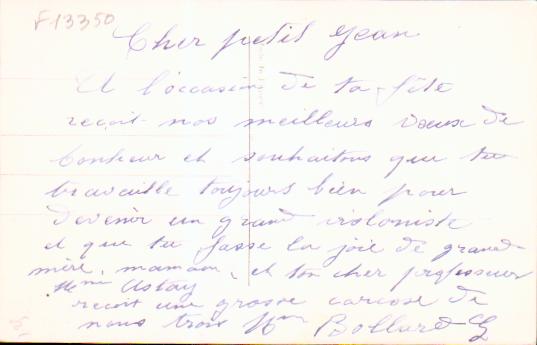 F13350
Cher petit Jean
A l'occasion de ta fête
reçoit nos meilleurs vœux de
bonheur et souhaitons que tu
travaille toujours bien pour
devenir un grand violoniste
et que tu fasse la joie de grand
mère, maman, et ton cher professeur
Mme
reçoit une grosse carcose de
nous trois Mme Bollard